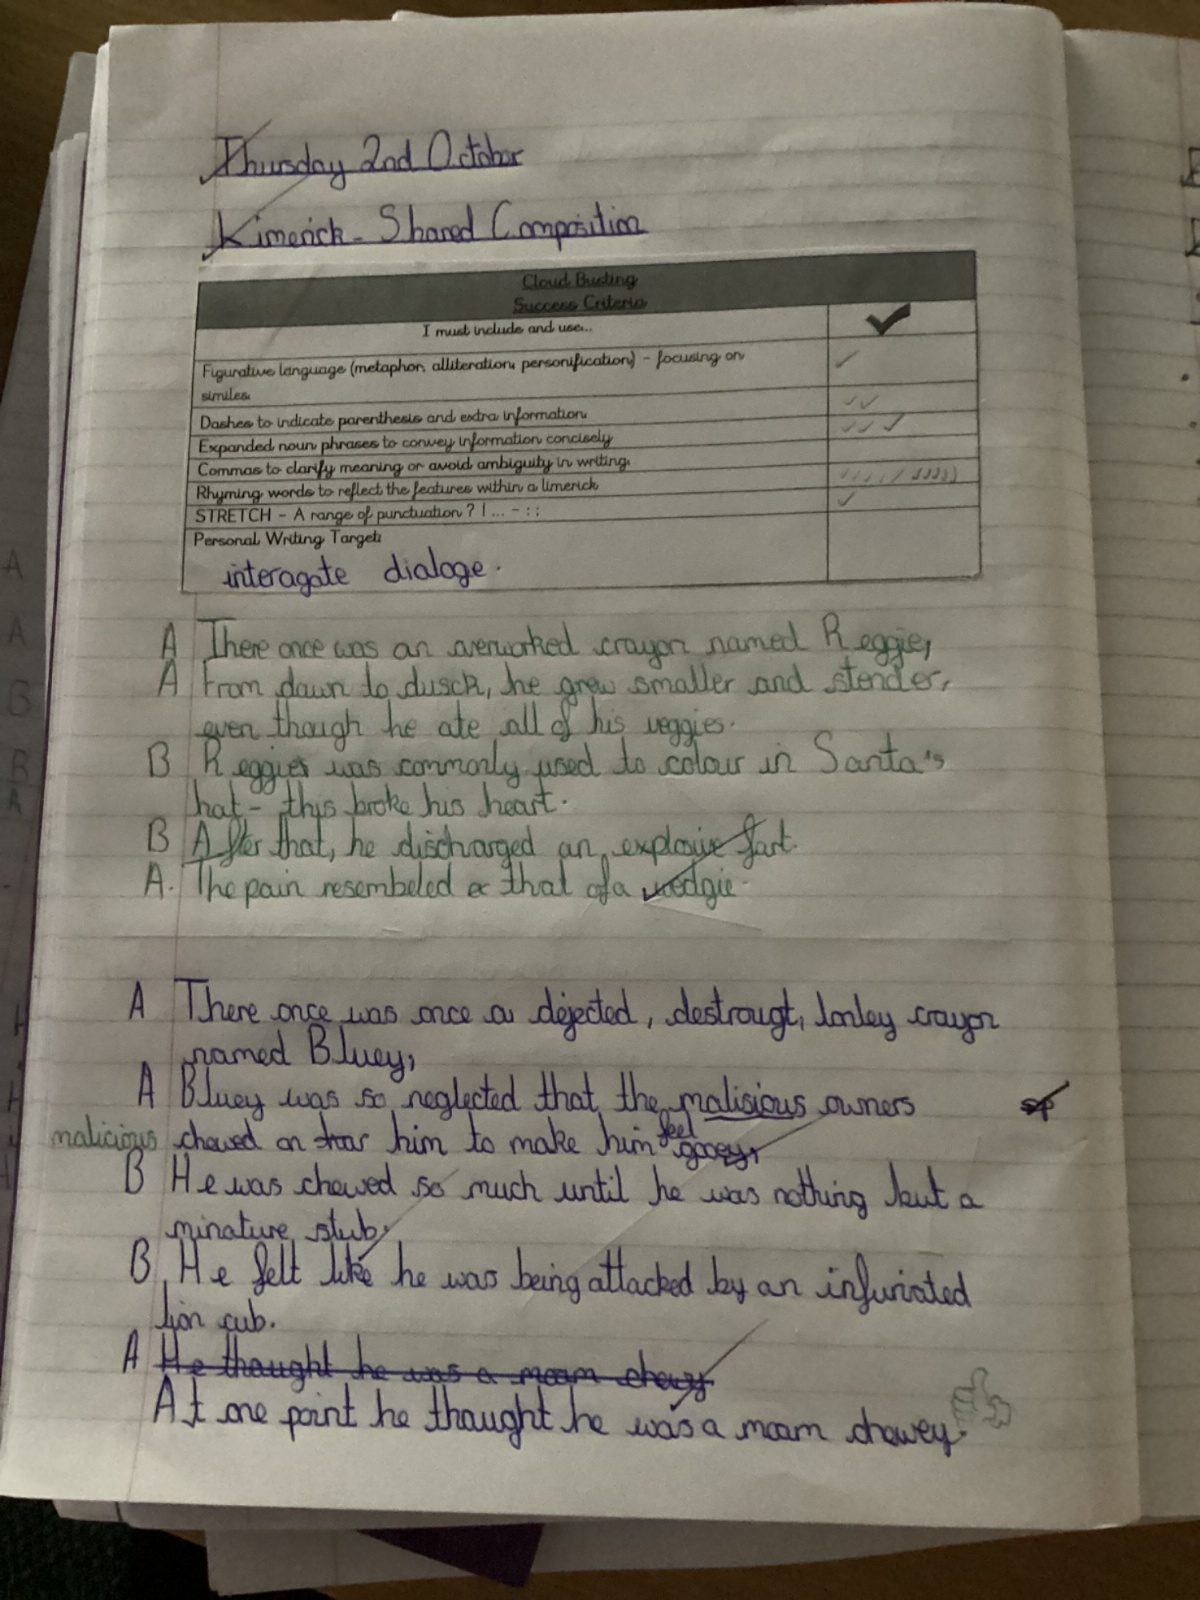 Thursday 2nd October
Limerick - Shared Composition
Cloud Busting
Success Criteria
I must include and use...
Figurative language (metaphor, alliteration, personification) - focusing on
similes.
Dashes to indicate parenthesis and extra information
Expanded noun phrases to convey information concisely
Commas to clarify meaning or avoid ambiguity in writing.
Rhyming words to reflect the features within a limerick
STRETCH - A range of punctuation ? ! ... - : ;
Personal Writing Target:
interagate dialoge.
A There once was an overworked crayon named Reggie,
A From dawn to dusck, he grew smaller and slender,
even though he ate all of his veggies.
B Reggies was commonly used to colour in Santa's
hat - this broke his heart.
B After that, he discharged an explosive fart.
A. The pain resembeled that of a wedgie.
A There once was once a dejected, destrougt, lonley crayon
named Bluey,
A Bluey was so neglected that the malisious owners sp
malicious chewed on him to make him feel gooey,
B He was chewed so much until he was nothing but a
minature stub.
B He felt like he was being attacked by an infuriated
lion cub.
A He thought he was a moam chewy
At one point he thought he was a moam chewey.